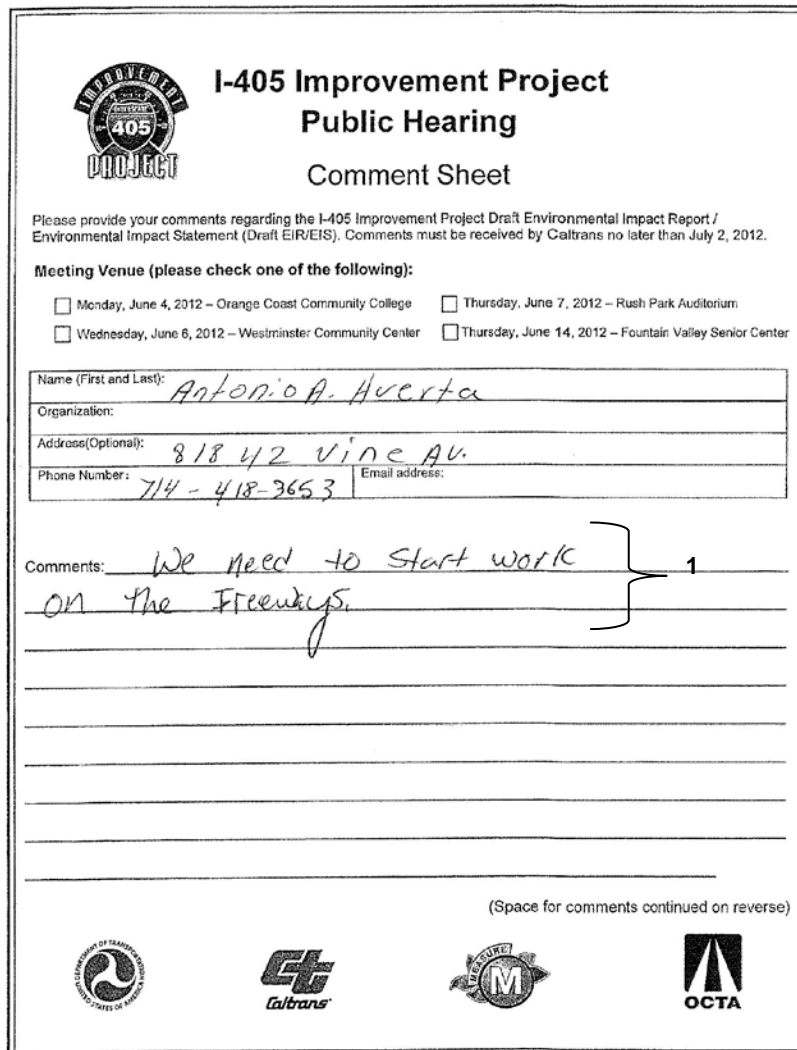 IMPROVEMENT
405
PROJECT
I-405 Improvement Project
Public Hearing
Comment Sheet
Please provide your comments regarding the I-405 Improvement Project Draft Environmental Impact Report /
Environmental Impact Statement (Draft EIR/EIS). Comments must be received by Caltrans no later than July 2, 2012.
Meeting Venue (please check one of the following):
Monday, June 4, 2012 – Orange Coast Community College
Thursday, June 7, 2012 – Rush Park Auditorium
Wednesday, June 6, 2012 – Westminster Community Center
Thursday, June 14, 2012 – Fountain Valley Senior Center
Name (First and Last): Antonio A. Averta
Organization:
Address(Optional): 818 42 Vine AV.
Phone Number: 714-418-3653 Email address:
Comments: We need to Start work
on the Freeways.
1
(Space for comments continued on reverse)
DEPARTMENT OF TRANSPORTATION
UNITED STATES OF AMERICA
Caltrans
MEASURE
M
OCTA